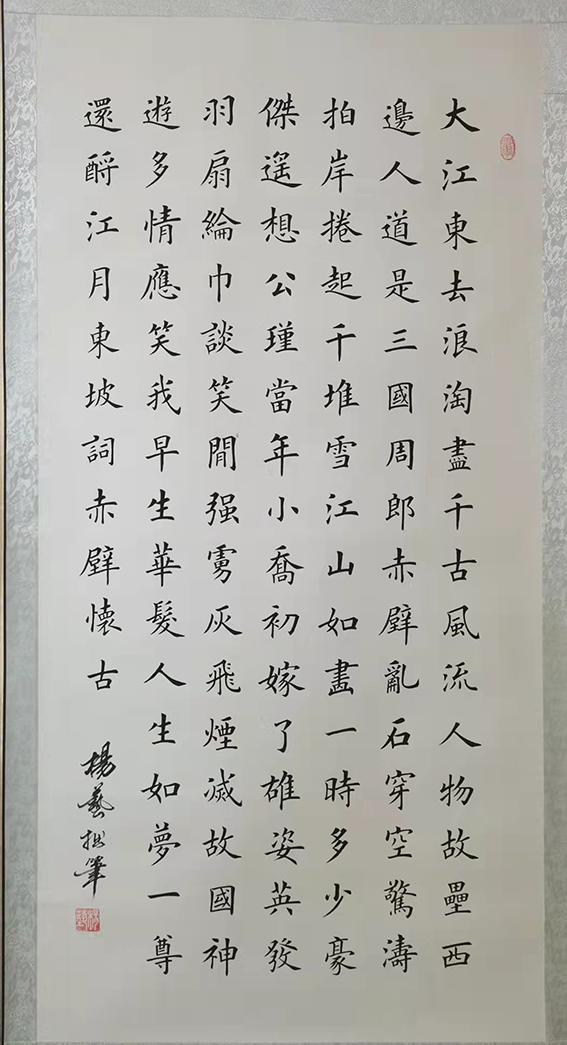 大江東去浪淘盡千古風流人物故壘西
邊人道是三國周郎赤壁亂石穿空驚濤
拍岸捲起千堆雪江山如畫一時多少豪
傑遥想公瑾當年小喬初嫁了雄姿英發
羽扇綸巾談笑閒强虜灰飛煙滅故國神
遊多情應笑我早生華髮人生如夢一尊
還酹江月東坡詞赤壁懷古
楊藝拙筆